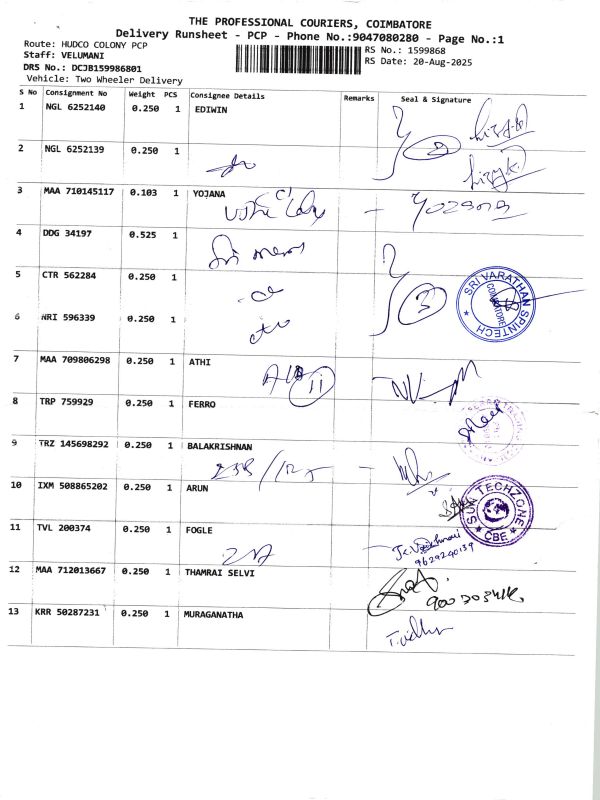 THE PROFESSIONAL COURIERS, COIMBATORE
Delivery Runsheet - PCP - Phone No.:9047080280 - Page No.:1
Route: HUDCO COLONY PCP
Staff: VELUMANI
DRS No.: DCJB159986801
Vehicle: Two Wheeler Delivery
RS No.: 1599868
RS Date: 20-Aug-2025
S No Consignment No Weight PCS Consignee Details Remarks Seal & Signature
1 NGL 6252140 0.250 1 EDIWIN
2 NGL 6252139 0.250 1
3 MAA 710145117 0.103 1 YOJANA
4 DDG 34197 0.525 1
5 CTR 562284 0.250 1
3
SRI VARATHAN SPINTECH
COIMBATORE
6 NRI 596339 0.250 1
7 MAA 709806298 0.250 1 ATHI
11
8 TRP 759929 0.250 1 FERRO
9 TRZ 145698292 0.250 1 BALAKRISHNAN
10 IXM 508865202 0.250 1 ARUN
SUN TECHZONE
CBE
11 TVL 200374 0.250 1 FOGLE
9629240139
12 MAA 712013667 0.250 1 THAMRAI SELVI
13 KRR 50287231 0.250 1 MURAGANATHA